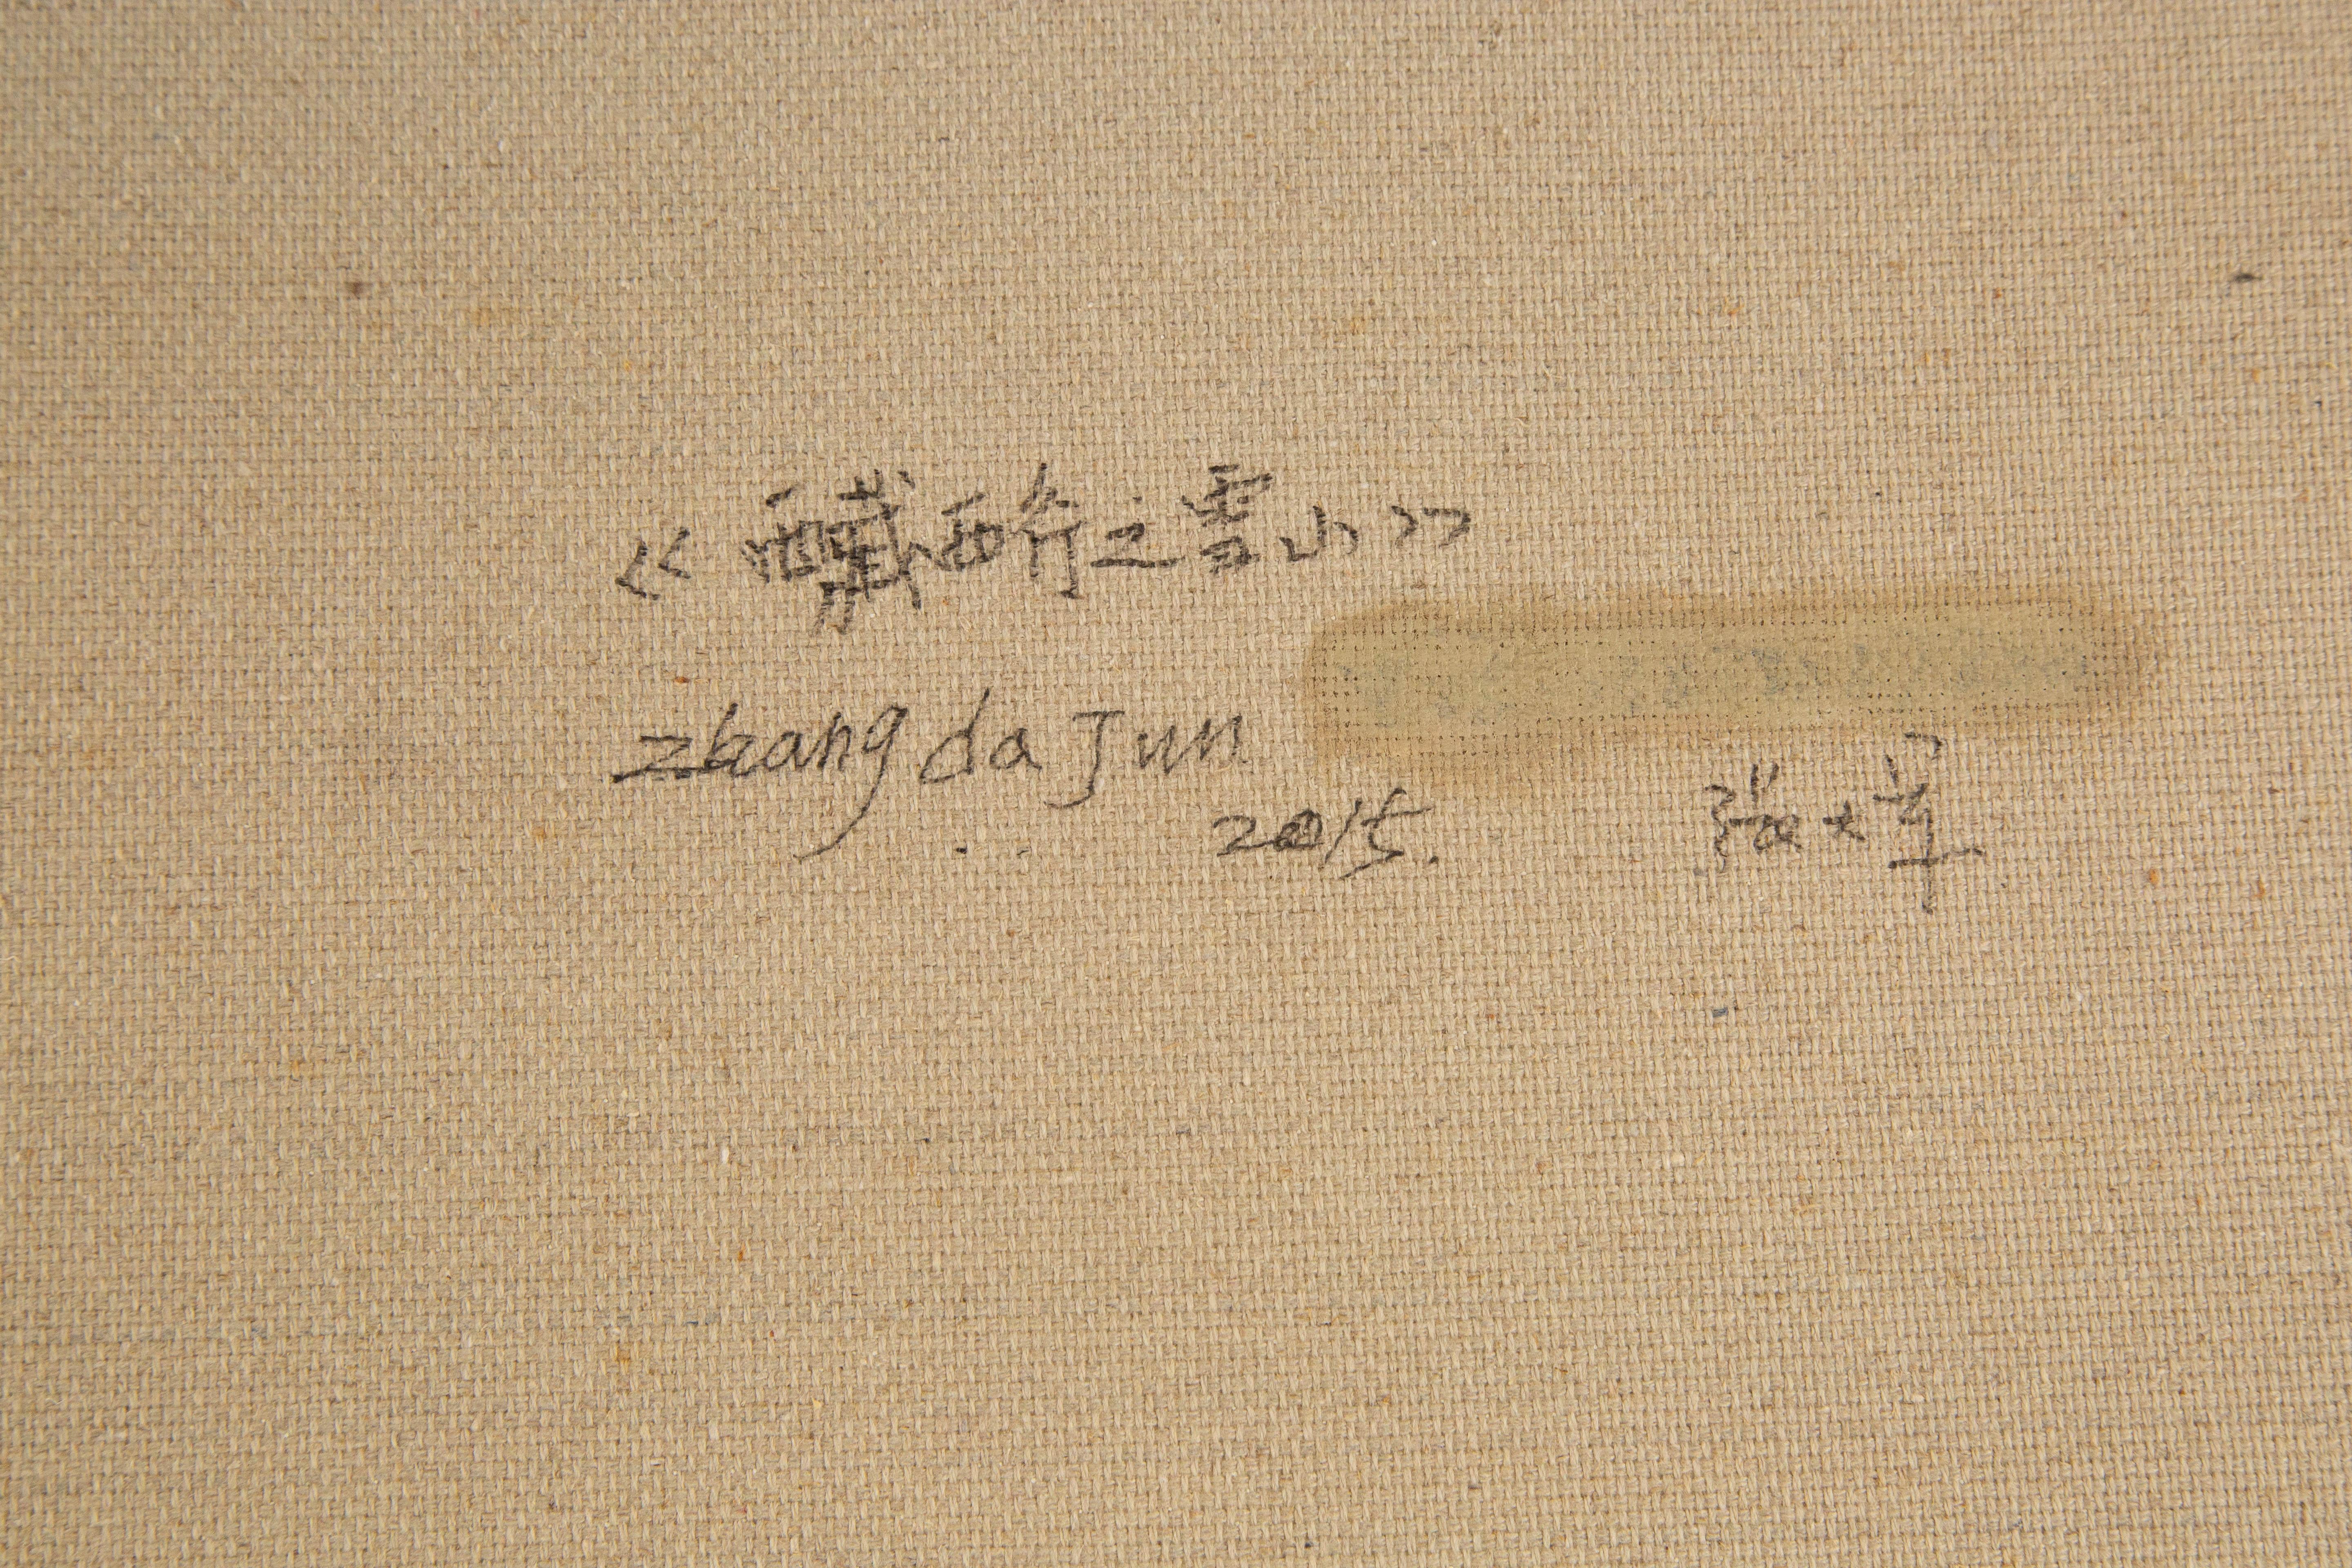 《藏西行之雪山》
zhang da Jun
2015. 张大军